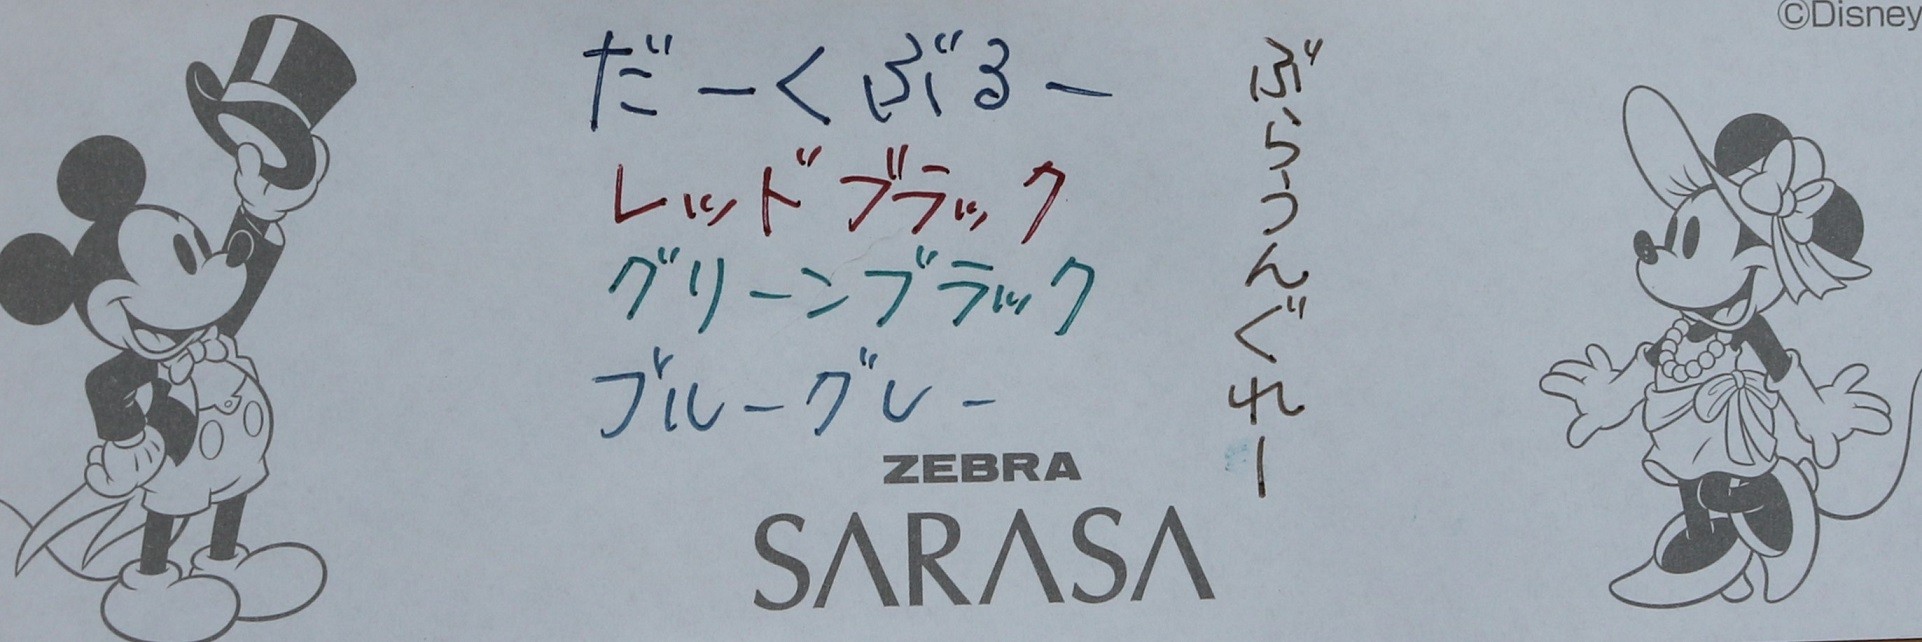 ©Disney
だーくぶるー
レッドブラック
グリーンブラック
ブルーグレー
ぶらうんぐれー
ZEBRA
SARASA